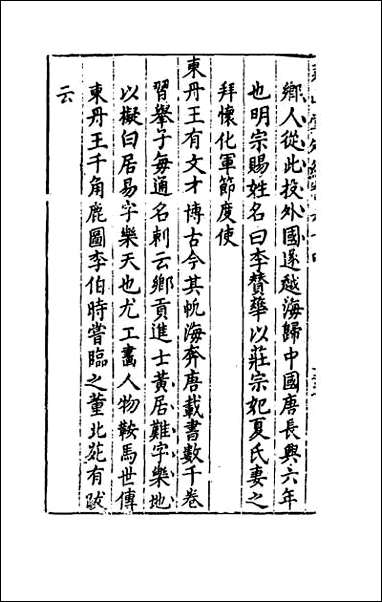 鄉人從此投外國遂越海歸中國唐長興六年
也明宗賜姓名曰李贊華以莊宗妃夏氏妻之
拜懷化軍節度使
東丹王有文才博古今其帆海奔唐載書數千卷
習舉子每通名刺云鄉貢進士黃居難字樂地
以擬白居易字樂天也尤工畫人物鞍馬世傳
東丹王千角鹿圖李伯時嘗臨之董北苑有跋
云